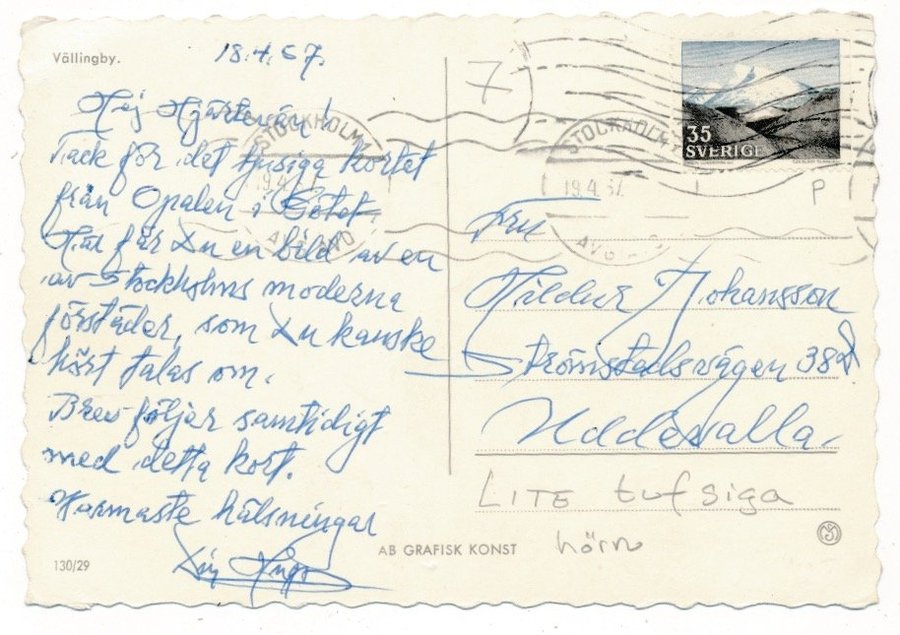 Vällingby.
18.4.67.
Hej Hjärtevän!
Tack för det tjusiga kortet
från Opalen i Götet.
Här får Du en bild av en
av Stockholms moderna
förstäder, som Du kanske
hört talas om.
Brev följer samtidigt
med detta kort.
Varmaste hälsningar
Din
130/29
AB GRAFISK KONST
7
STOCKHOLM
19.4.67
STOCKHOLM
19.4.67
35
SVERIGE
P
Fru
Hildur Johansson
Strömstadsvägen 38
Uddevalla.
LITE tufsiga
hörn